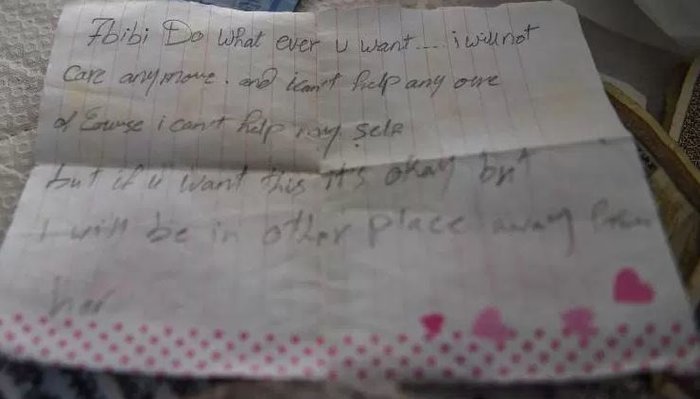 7bibi Do what ever u want.... i will not
care anymore. and i can't help any one
of Course i can't help my self
but if u want this it's okay but
I will be in other place away from
her